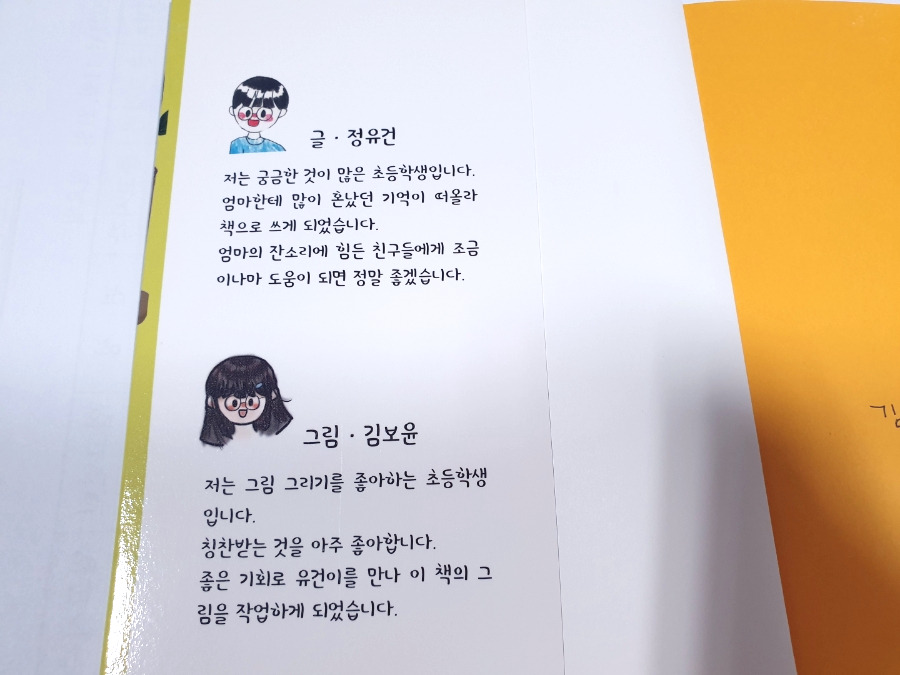 글 · 정유건
저는 궁금한 것이 많은 초등학생입니다.
엄마한테 많이 혼났던 기억이 떠올라
책으로 쓰게 되었습니다.
엄마의 잔소리에 힘든 친구들에게 조금
이나마 도움이 되면 정말 좋겠습니다.
그림 · 김보윤
저는 그림 그리기를 좋아하는 초등학생
입니다.
칭찬받는 것을 아주 좋아합니다.
좋은 기회로 유건이를 만나 이 책의 그
림을 작업하게 되었습니다.